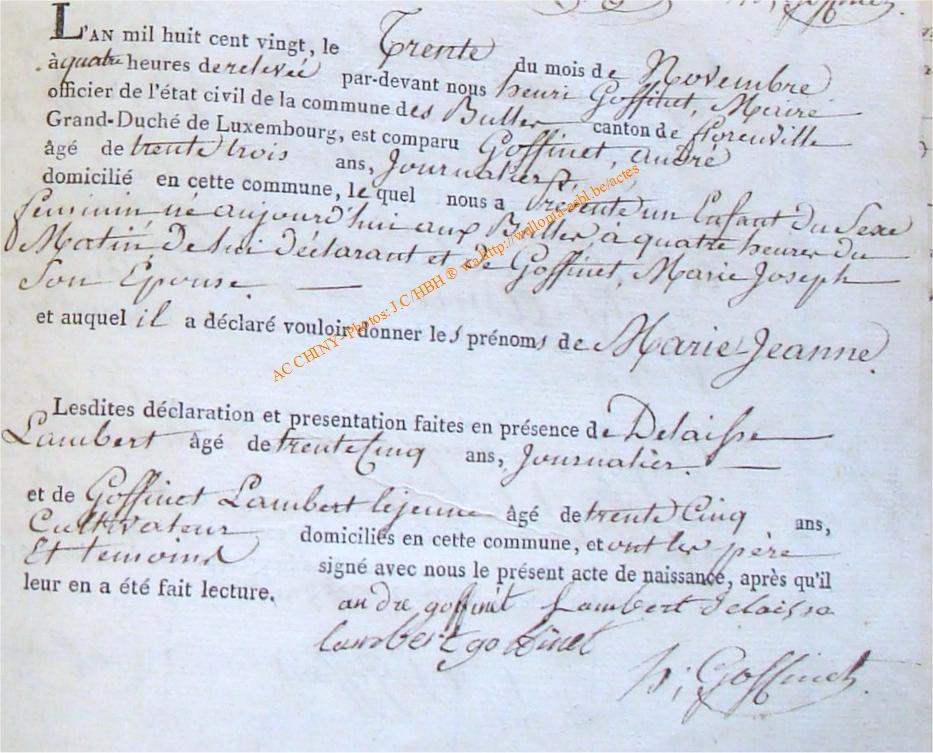 h; Goffinet.
L'AN mil huit cent vingt, le Trente du mois de Novembre
à quatre heures de relevée par-devant nous henri Goffinet, Maire
officier de l'état civil de la commune des Bulles canton de florenville
Grand-Duché de Luxembourg, est comparu Goffinet, andré
âgé de trente trois ans, Journalier
domicilié en cette commune, le quel nous a Présenté un Enfant du Sexe
feminin né aujourd'hui aux Bulles à quatre heures du
Matin de lui déclarant et de Goffinet, Marie Joseph
Son Epouse.
et auquel il a déclaré vouloir donner les prénoms de Marie-Jeanne.
Lesdites déclaration et presentation faites en présence de Delaisse
Lambert âgé de trente Cinq ans, Journalier.
et de Goffinet Lambert lejeune âgé de trente Cinq ans,
Cultivateur domiciliés en cette commune, et ont les père
Et temoins signé avec nous le présent acte de naissance, après qu'il
leur en a été fait lecture.
andre goffinet Lambert delaisse
lambert goffinet
h; Goffinet.
ACCHINY - Photos: J.C/HBH ® wa.http://wallonia-asbl.be/actes